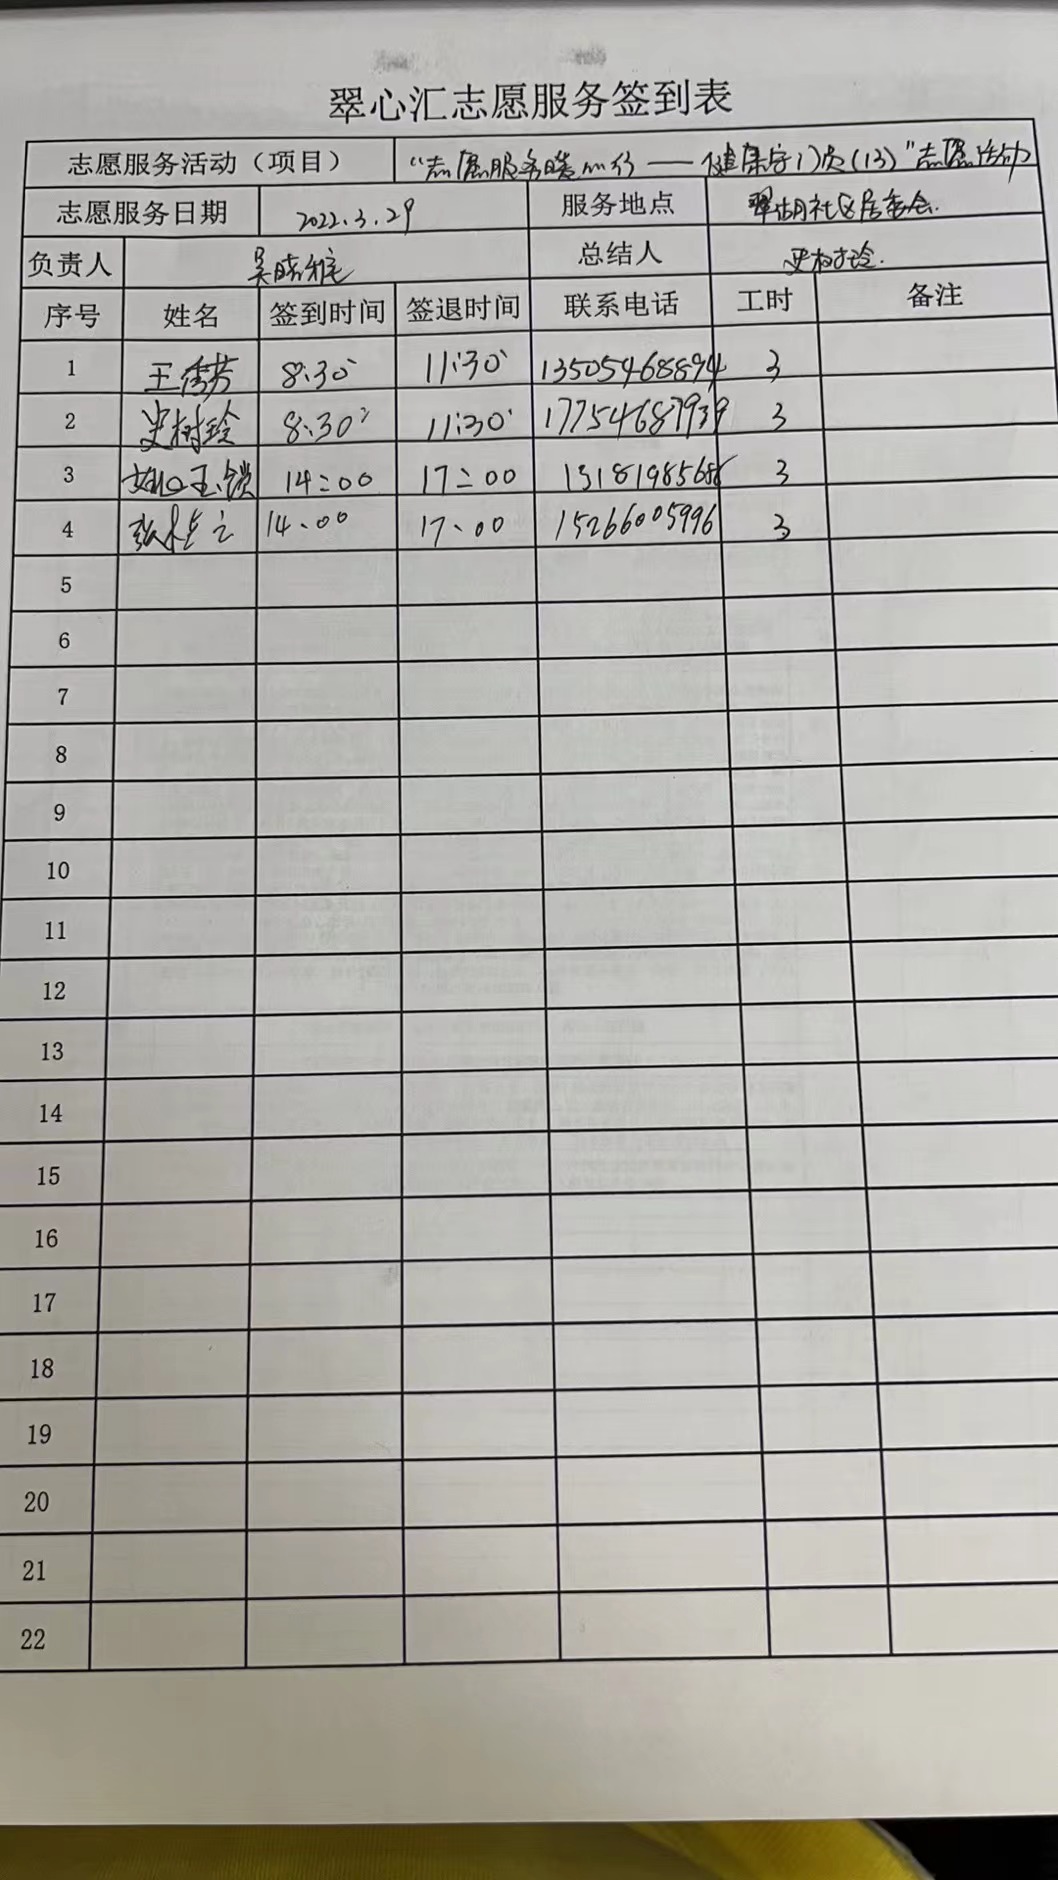 翠心汇志愿服务签到表
志愿服务活动（项目） “志愿服务暖心行——健康守门员(13)”志愿活动
志愿服务日期 2022.3.29 服务地点 翠湖社区居委会.
负责人 吴 总结人 史树玲.
序号 姓名 签到时间 签退时间 联系电话 工时 备注
1 王秀芳 8:30 11:30 13505468894 3
2 史树玲 8:30 11:30 17754687939 3
3 姚玉锁 14:00 17:00 3
4 张 14:00 17:00 15266005996 3
5
6
7
8
9
10
11
12
13
14
15
16
17
18
19
20
21
22